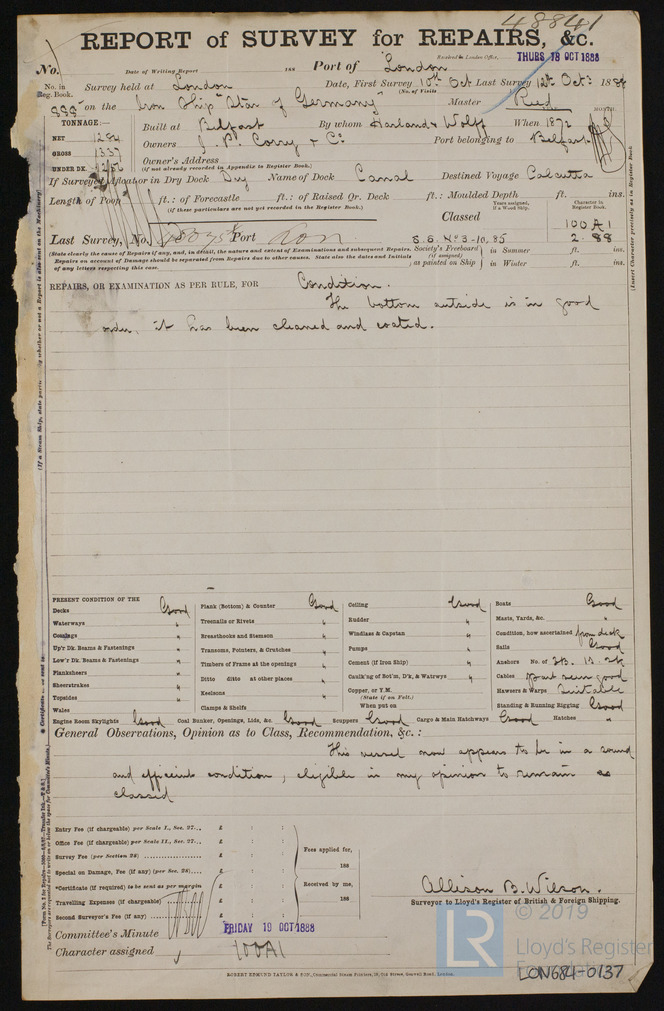 48841
REPORT of SURVEY for REPAIRS, &c.
Received in London Office, THURS 18 OCT 1888
No. Date of Writing Report 188 Port of London
No. in Reg. Book. Survey held at London Date, First Survey 10th Oct Last Survey 12th Oct: 1888
(No. of Visits
888 on the Iron Ship "Star of Germany" Master Reed
TONNAGE:— Built at Belfast By whom Harland & Wolff When 1872
NET 1284 Owners J. P. Corry & Co Port belonging to Belfast
GROSS 1337 Owner's Address
UNDER DK. (if not already recorded in Appendix to Register Book.)
If Surveyed Afloat or in Dry Dock Dry Name of Dock Canal Destined Voyage Calcutta
Length of Poop ft.: of Forecastle ft.: of Raised Qr. Deck ft.: Moulded Depth ft. ins.
(if these particulars are not yet recorded in the Register Book.)
Classed
Years assigned, if a Wood Ship.
Character in Register Book.
100A1
2.88
Last Survey, No. Port Lon S.S. No 3-10.85
(State clearly the cause of Repairs if any, and, in detail, the nature and extent of Examinations and subsequent Repairs.
Repairs on account of Damage should be separated from Repairs due to other causes. State also the dates and Initials
of any letters respecting this case.
Society's Freeboard (if assigned) as painted on Ship in Summer ft. ins.
in Winter ft. ins.
REPAIRS, OR EXAMINATION AS PER RULE, FOR Condition.
The bottom outside is in good
order, it has been cleaned and coated.
PRESENT CONDITION OF THE
Decks Good
Waterways "
Coamings "
Up'r Dk. Beams & Fastenings "
Low'r Dk. Beams & Fastenings "
Planksheers "
Sheerstrakes "
Topsides "
Wales
Plank (Bottom) & Counter Good
Treenails or Rivets "
Breasthooks and Stemson "
Transoms, Pointers, & Crutches "
Timbers of Frame at the openings "
Ditto ditto at other places "
Keelsons "
Clamps & Shelfs
Ceiling Good
Rudder "
Windlass & Capstan "
Pumps "
Cement (if Iron Ship) "
Caulk'ng of Bot'm, D'k, & Watrwys "
Copper, or Y.M.
(State if on Felt.)
When put on
Boats Good
Masts, Yards, &c. "
Condition, how ascertained from deck
Sails Good
Anchors No. of 3B. 1S. 2K
Cables Part seen good
Hawsers & Warps Suitable
Standing & Running Rigging Good
Engine Room Skylights Good Coal Bunker, Openings, Lids, &c. Good Scuppers Good Cargo & Main Hatchways Good Hatches "
General Observations, Opinion as to Class, Recommendation, &c.:
This vessel now appears to be in a sound
and efficient condition, eligible in my opinion to remain as
classed
Entry Fee (if chargeable) per Scale I., Sec. 27... £ : :
Office Fee (if chargeable) per Scale II., Sec. 27... £ : :
Survey Fee (per Section 28) £ : :
Special on Damage, Fee (if any) (per Sec. 28).... £ : :
*Certificate (if required) to be sent as per margin £ : :
Travelling Expenses (if chargeable) £ : :
Second Surveyor's Fee (if any) £ : :
Fees applied for,
188
Received by me,
188
Allison B. Wilson.
Surveyor to Lloyd's Register of British & Foreign Shipping.
Committee's Minute FRIDAY 19 OCT 1888
Character assigned 100A1
ROBERT EDMUND TAYLOR & SON, Commercial Steam Printers, 19, Old Street, Goswell Road, London.
LR
© 2019
Lloyd's Register
Foundation
LON684-0137